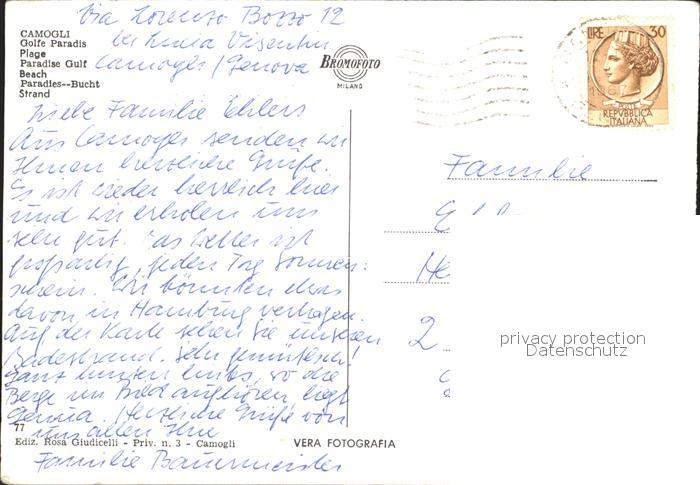 Via Lorenzo Bozzo 12
bei Lucia Visentin
Camogli / Genova
CAMOGLI
Golfe Paradis
Plage
Paradise Gulf
Beach
Paradies--Bucht
Strand
BROMOFOTO
MILANO
LIRE 30
REPVBBLICA
ITALIANA
Liebe Familie Ehlers
Aus Camogli senden wir
Ihnen herzliche Grüße.
Es ist wieder herrlich hier
und wir erholen uns
sehr gut. Das Wetter ist
großartig, jeden Tag Sonnen:
schein. Wir könnten etwas
davon in Hamburg vertragen.
Auf der Karte sehen Sie unseren
Badestrand. Sehr gemütlich!
Ganz hinten links, wo die
Berge im Bild aufhören, liegt
Genua. Herzliche Grüße von
uns allen Ihre
Familie Bauermeister
Familie
He
2
privacy protection
Datenschutz
77
Ediz. Rosa Giudicelli - Priv. n. 3 - Camogli
VERA FOTOGRAFIA